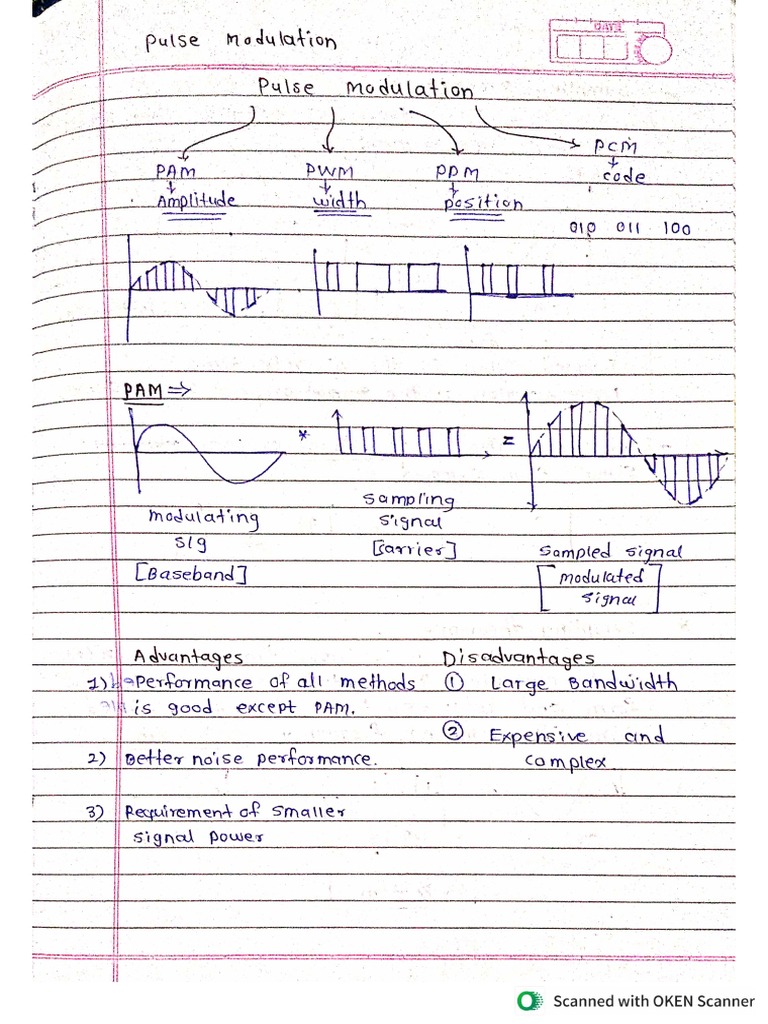 Pulse Modulation
DATE
Pulse Modulation
PAM PWM PPM PCM
Amplitude width position code
010 011 100
PAM ⇒
* =
modulating
sig
[Baseband]
Sampling
signal
[carrier]
Sampled signal
[modulated
signal]
Advantages
1) Performance of all methods
is good except PAM.
2) Better noise performance.
3) Requirement of smaller
signal power
Disadvantages
① Large Bandwidth
② Expensive and
complex
Scanned with OKEN Scanner